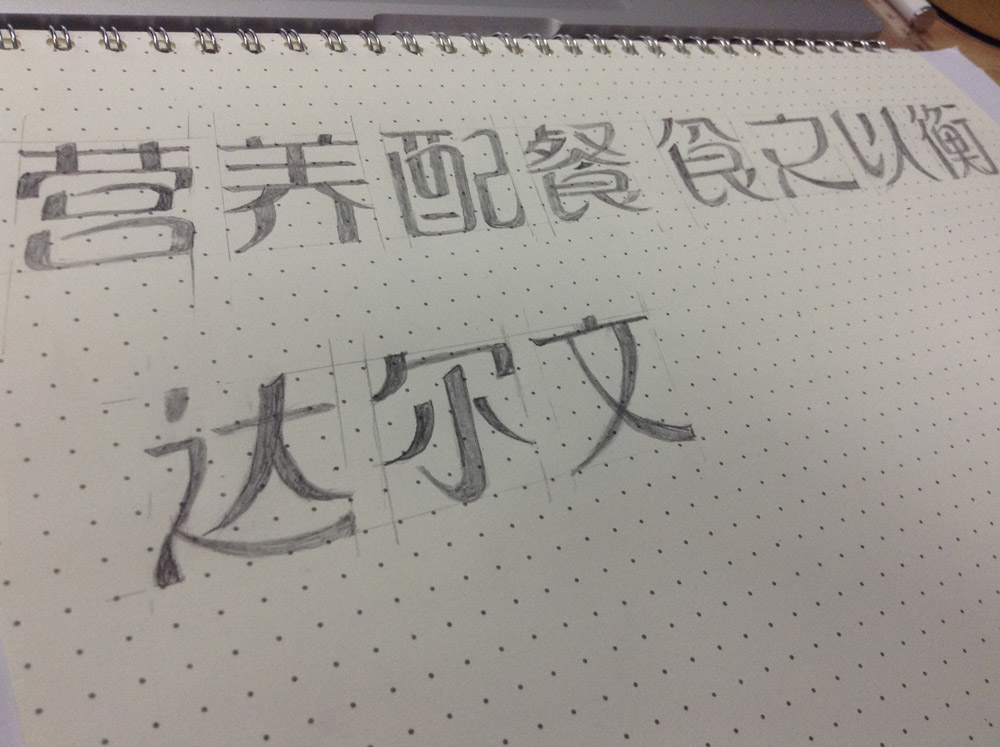 营养配餐 食之以衡
达尔文